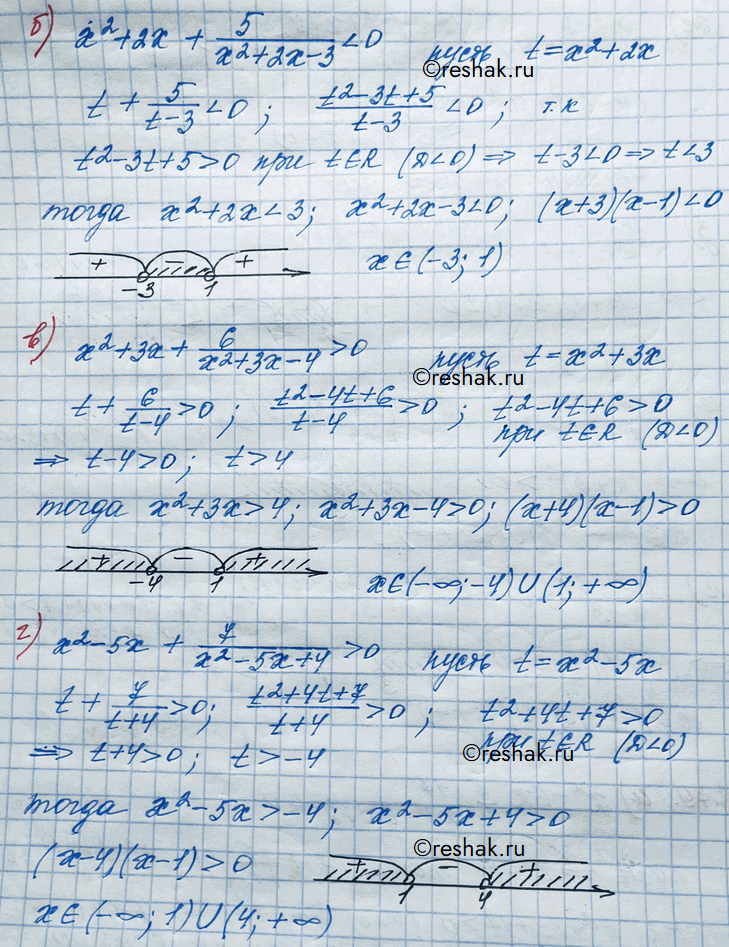 б) x²+2x + 5/(x²+2x-3) <0 пусть t=x²+2x
©reshak.ru
t + 5/(t-3) <0; (t²-3t+5)/(t-3) <0; т.к
t²-3t+5>0 при t∈R (D<0) ⇒ t-3<0 ⇒ t<3
тогда x²+2x<3; x²+2x-3<0; (x+3)(x-1)<0
+ - +
-3 1 x∈(-3; 1)
в) x²+3x + 6/(x²+3x-4) >0 пусть t=x²+3x
©reshak.ru
t + 6/(t-4) >0; (t²-4t+6)/(t-4) >0; t²-4t+6>0
при t∈R (D<0)
⇒ t-4>0; t>4
тогда x²+3x>4; x²+3x-4>0; (x+4)(x-1)>0
+ - +
-4 1 x∈(-∞;-4)∪(1;+∞)
г) x²-5x + 7/(x²-5x+4) >0 пусть t=x²-5x
t + 7/(t+4) >0; (t²+4t+7)/(t+4) >0; t²+4t+7>0
при t∈R (D<0)
⇒ t+4>0; t>-4
©reshak.ru
тогда x²-5x>-4; x²-5x+4>0
©reshak.ru
(x-4)(x-1)>0
+ - +
1 4
x∈(-∞; 1)∪(4; +∞)